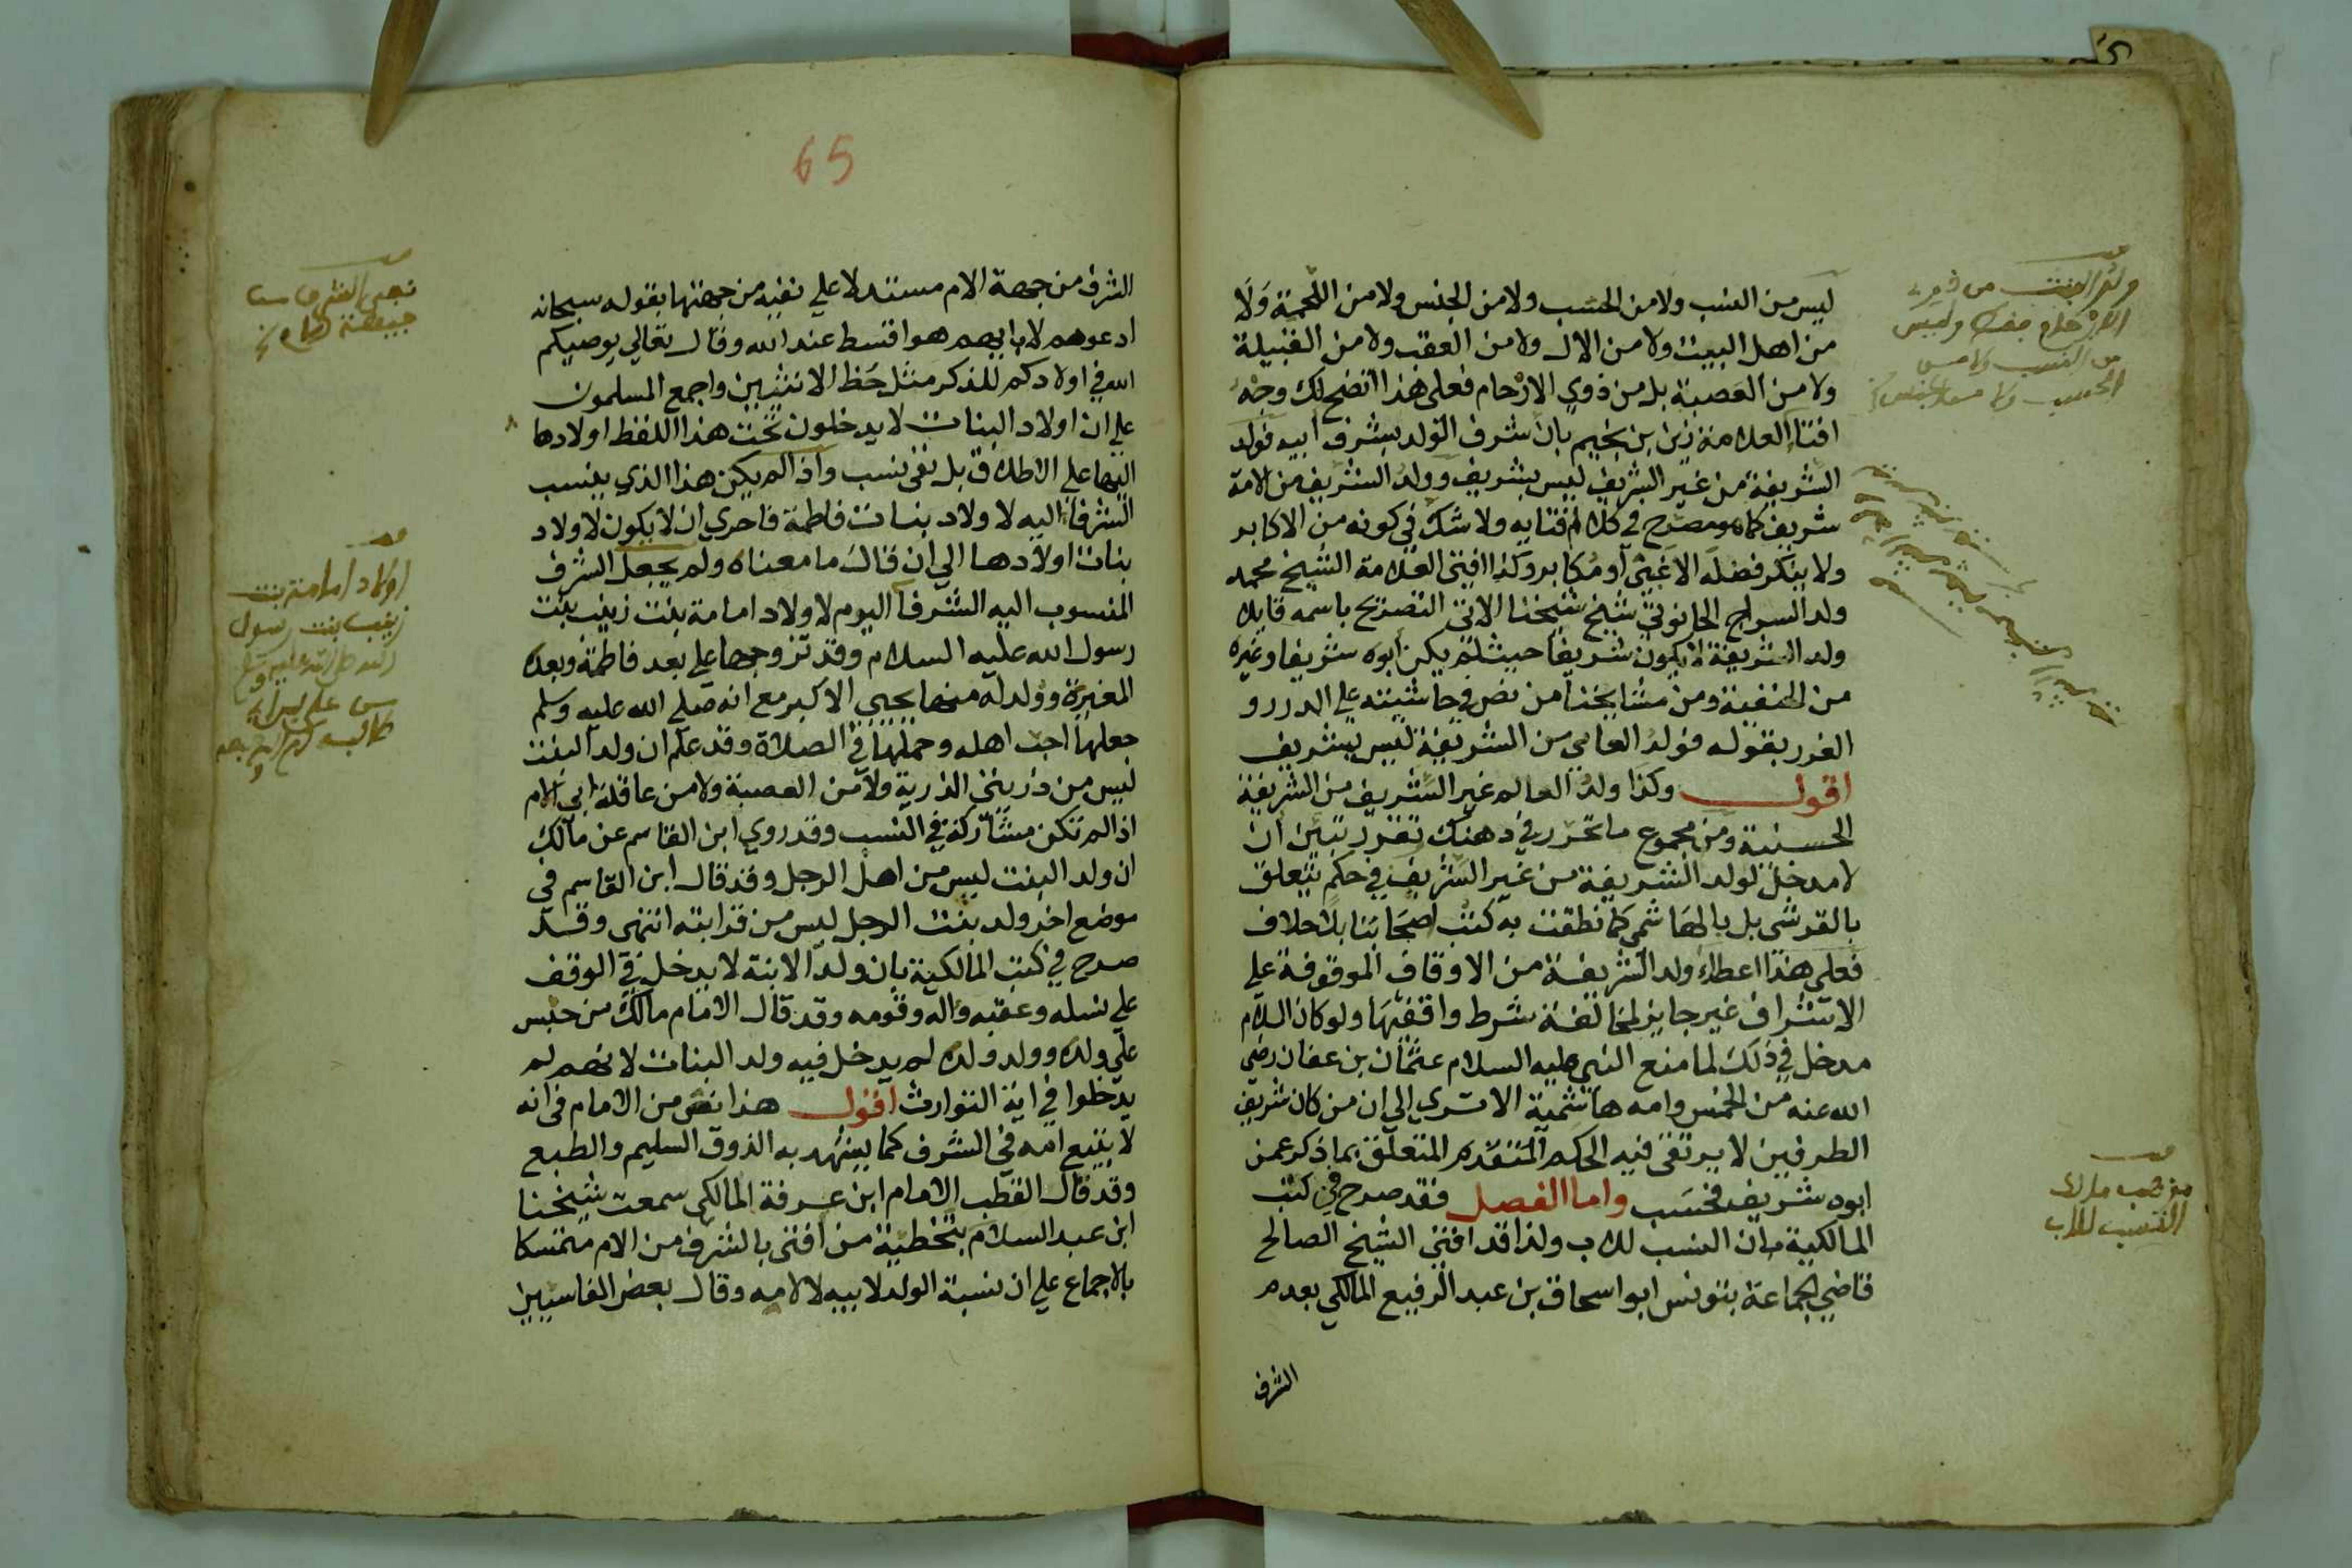 ليس من النسب ولا من الحسب ولا من الجنس ولا من اللحمة ولا
من اهل البيت ولا من الال ولا من العقب ولا من القبيلة
ولا من العصبة بل من ذوي الارحام فعلى هذا اتضح لك وجه
افتاء العلامة زين بن نجيم بان شرف الولد بشرف ابيه فولد
الشريفة من غير الشريف ليس بشريف وولد الشريف من الامة
شريف كما هو مصرح في كلام افتايه ولا شك في كونه من الاكابر
ولا ينكر فضله الا غبي او مكابر وكذا افتى العلامة الشيخ محمد
ولد السراج الحانوتي شيخ شيخنا الاتي التصريح باسمه قايلا
ولد الشريفة لا يكون شريفا حيث لم يكن ابوه شريفا وغيره
من الحنفية ومن مشايخنا من نص في حاشيته علي الدرر و
الغرر بقوله فولد العامي من الشريفة ليس بشريف
اقول وكذا ولد العالم غير الشريف من الشريفة
الحسنية ومن مجموع ما تحرر في ذهنك تقرر تبين ان
لا مدخل لولد الشريفة من غير الشريف في حكم يتعلق
بالقرشي بل بالهاشمي كما نطقت به كتب اصحابنا بلا خلاف
فعلى هذا اعطاء ولد الشريفة من الاوقاف الموقوفة علي
الاشراف غير جايز لمخالفة شرط واقفها ولو كان للام
مدخل في ذلك لما منع النبي عليه السلام عثمان بن عفان رضي
الله عنه من الخمس وامه هاشمية الا ترى الي ان من كان شريف
الطرفين لا يرتقى فيه الحكم المتقدم المتعلق بما ذكر عمن
ابوه شريف فحسب واما الفصل فقد صرح في كتب
المالكية بان النسب للاب ولذا قد افتى الشيخ الصالح
قاضي الجماعة بتونس ابو اسحاق بن عبد الرفيع المالكي بعدم
الشرف
ولد البنت من ذوي
الارحام فقط وليس
من النسب ولا من
الحسب ولا من الجنس
مذهب مالك
النسب للاب
65
الشرف من جهة الام مستدلا علي نفيه من جهتها بقوله سبحانه
ادعوهم لابايهم هو اقسط عند الله وقال تعالي يوصيكم
الله في اولادكم للذكر مثل حظ الانثيين واجمع المسلمون
علي ان اولاد البنات لا يدخلون تحت هذا اللفظ اولادها
اليها علي الاطلاق بل نفى نسب واذا لم يكن هذا الذي ينسب
الشرفا اليه لاولاد بنات فاطمة فاحري ان لا يكون لاولاد
بنات اولادها الي ان قال ما معناه ولم يجعل الشرف
المنسوب اليه الشرفا اليوم لاولاد امامة بنت زينب بنت
رسول الله عليه السلام وقد تزوجها علي بعد فاطمة وبعده
المغيرة وولد له منها يحيي الاكبر مع انه صلي الله عليه وسلم
جعلها احب اهله وحملها في الصلاة وقد علم ان ولد البنت
ليس من ذريتي الذرية ولا من العصبة ولا من عاقلة ابي الام
اذا لم تكن مشاركة في النسب وقد روي ابن القاسم عن مالك
ان ولد البنت ليس من اهل الرجل وقد قال ابن القاسم في
موضع اخر ولد بنت الرجل ليس من قرابته انتهى وقد
صرح في كتب المالكية بان ولد الابنة لا يدخل في الوقف
علي نسله وعقبه واله وقومه وقد قال الامام مالك من حبس
علي ولده وولد ولده لم يدخل فيه ولد البنات لانهم لم
يدخلوا في اية التوارث اقول هذا نص من الامام في انه
لا يتبع امه في الشرف كما يشهد به الذوق السليم والطبع
وقد قال القطب الامام ابن عرفة المالكي سمعت شيخنا
ابن عبد السلام بتخطية من افتى بالشرف من الام متمسكا
بالاجماع علي ان نسبة الولد لابيه لا لامه وقال بعض الفاسيين
اولاد امامة بنت
زينب بنت رسول
الله صلى الله عليه وسلم